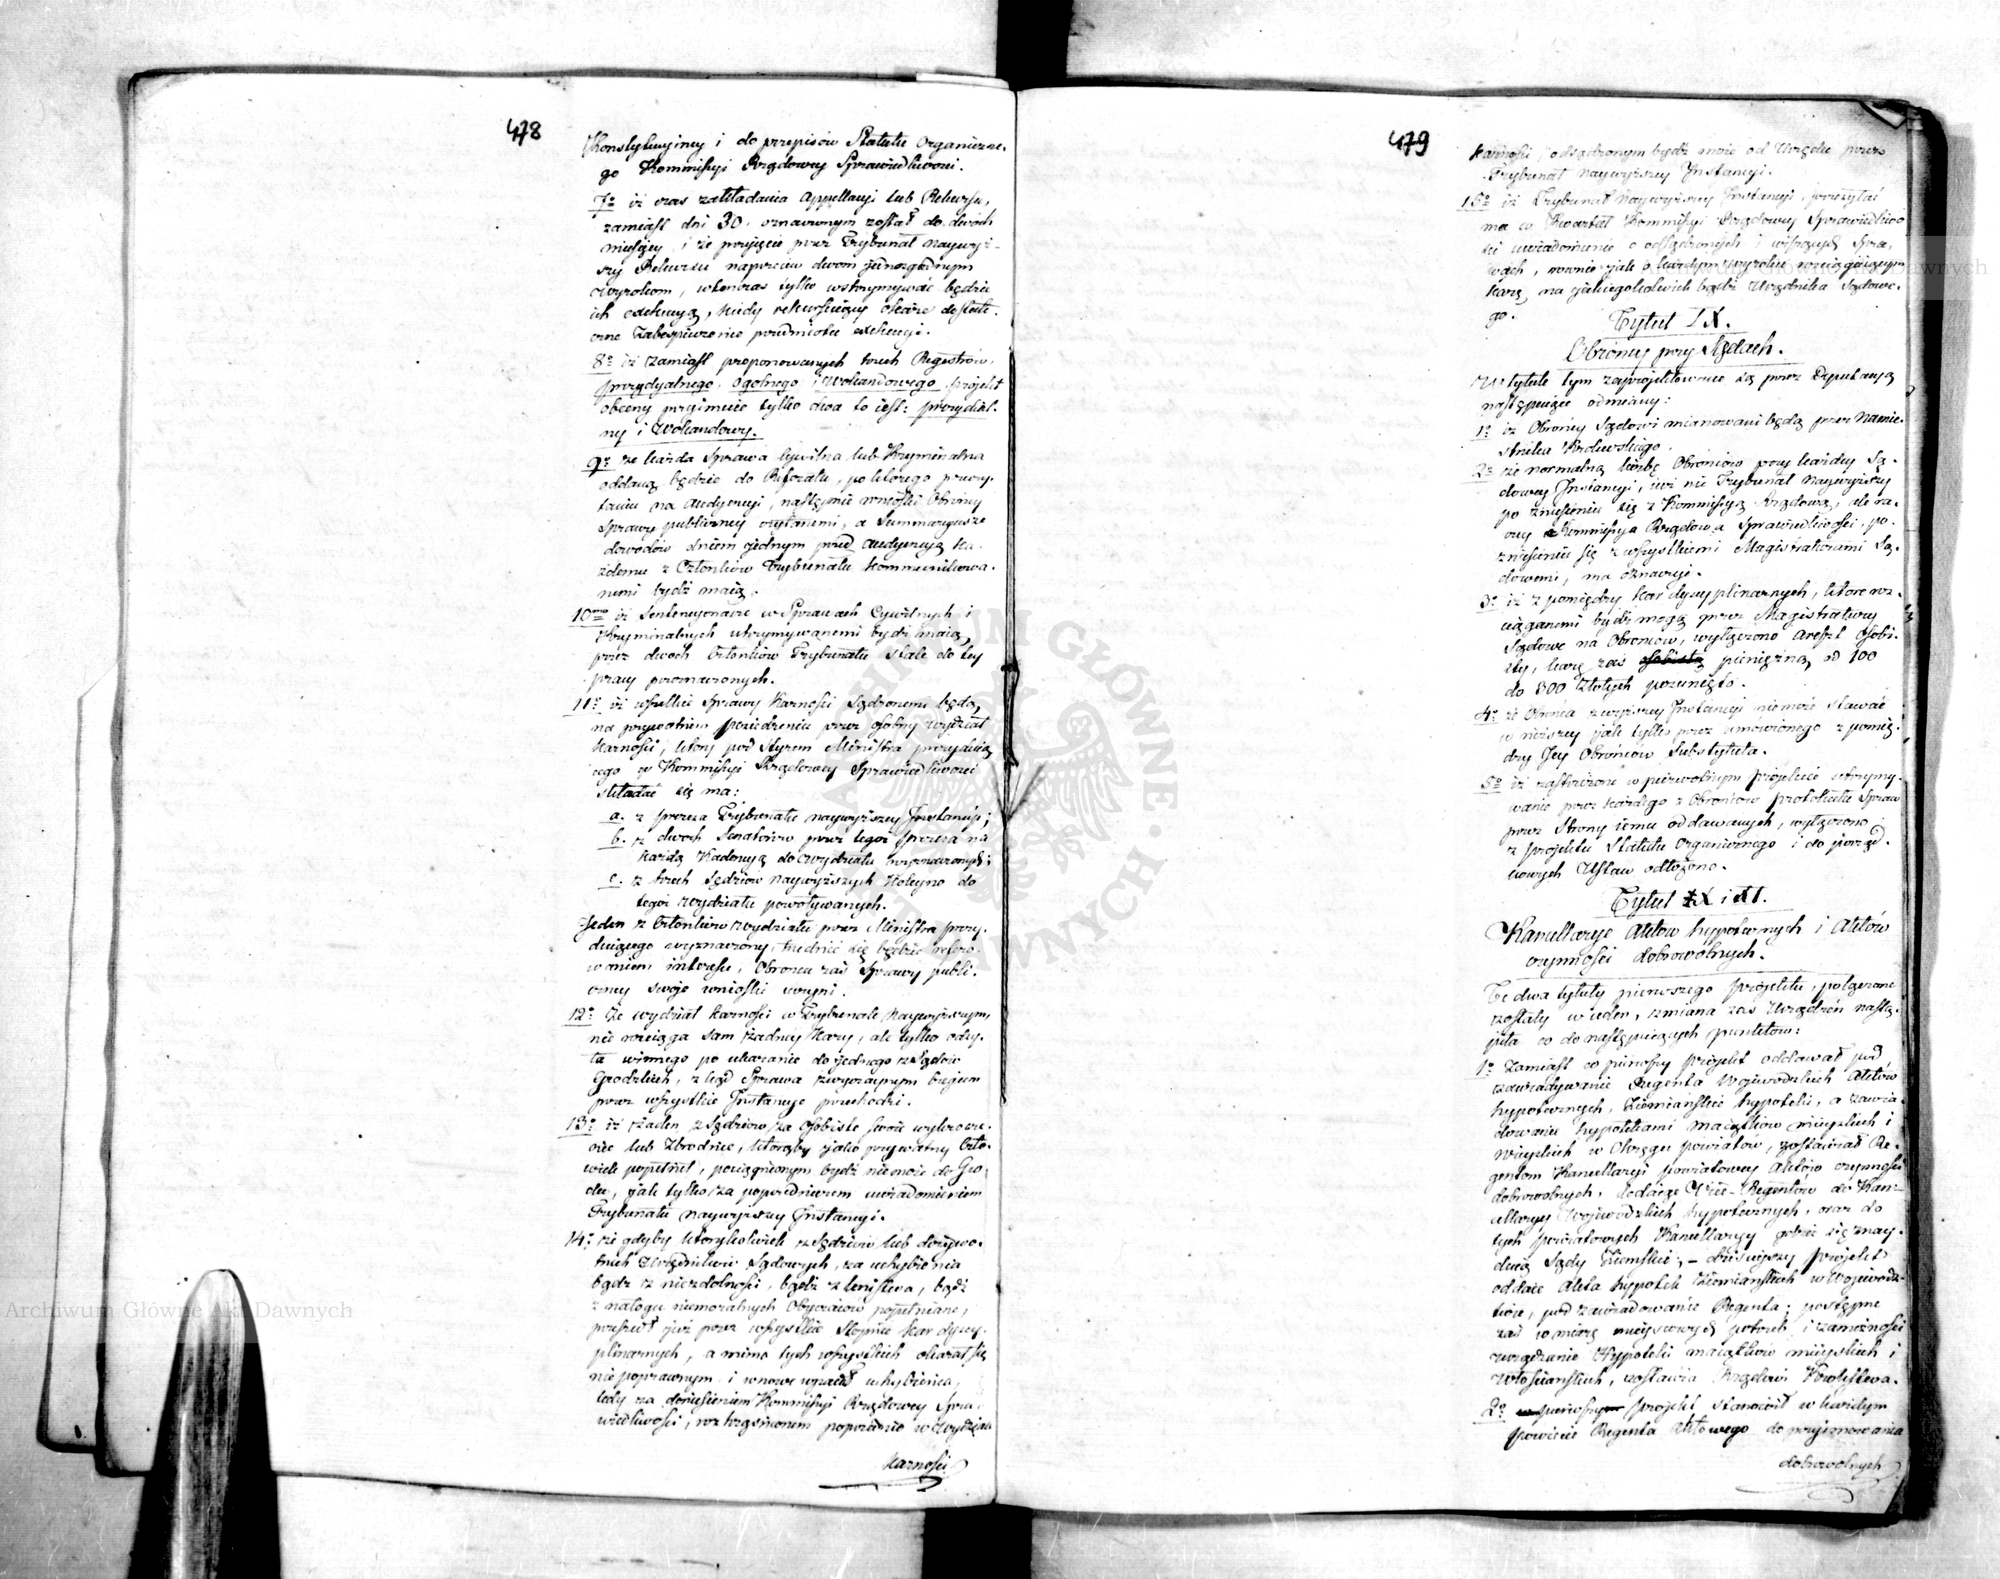 478
Konstytucyiney i do przepisów Statutu Organiczne-
go Kommissyi Rządowey Sprawiedliwości.
7º iż czas zakładania Appellacyi lub Rekursu,
zamiast dni 30. oznaczonym został do dwóch
miesięcy, i że przyięcie przez Trybunał naywyż-
szy Rekursu naprzeciw dwom jednozgodnym
wyrokom, wtenczas tylko wstrzymywać będzie
ich exekucyą, kiedy rekursuiący okaże dostate-
czne zabespieczenie przedmiotu exekucyi.
8º iż zamiast proponowanych trzech Regestrów,
prezydyalnego, ogólnego i Wokandowego, projekt
obecny przyimuie tylko dwa to iest: prezydial-
ny i Wokandowy.
9º że każda Sprawa Cywilna lub Kryminalna
oddaną będzie do Referatu, po którego przeczy-
taniu na Audyencyi, nastęnie wnioski Obrony
Sprawy publiczney czytanemi, a Summaryusze
dowodów dniem jednym przed Audyencyą ka-
żdemu z Członków Trybunału kommunikowa-
nemi bydź maią.
10mo iż Sentencyonarze w Sprawach Cywilnych i
Kryminalnych utrzymywanemi bydź maią,
przez dwóch Członków Trybunału stale do tey
pracy przeznaczonych.
11º iż wszelkie Sprawy Karności Sądzonemi będą,
na prywatnem posiedzeniu przez osobny wydział
Karności, który pod Sterem Ministra prezyduią
cego w Kommissyi Rządowey Sprawiedliwości
składać się ma:
a. z Prezesa Trybunału naywyższey Instancyi;
b. z dwóch Senatorów przez tegoż Prezesa na
każdą Kadencyą do wydziału wyznaczonych;
c. z trzech Sędziów naywyższych koleyno do
tegoż wydziału powoływanych.
Jeden z Członków wydziału przez Ministra prezy-
duiącego wyznaczony, trudnić się będzie refero-
waniem interesu, Obronca zaś Sprawy publi-
czney swoje wnioski uczyni.
12º że wydział karności w Trybunale Naywyższym,
nie wciąga sam żadney kary, ale tylko odsy-
ła winnego po ukaranie do jednego z Sądów
Grodzkich, z kąd Sprawa zwyczaynym biegiem
przez wszystkie Instancye przechodzi.
13º iż żaden z Sędziów za osobiste swoie wykrocze-
nie lub Zbrodnie, którąby jako prywatny Czło-
wiek popełnił, pociągnionym bydź nie może do Gro-
du, jak tylko za poprzedniczem uwiadomieniem
Trybunału naywyższey Instancyi.
14º że gdyby którykolwiek z Sędziów lub dożywo-
tnich Urzędników Sądowych, za uchybienia
bądź z niezdolności, bądź z lenistwa, bądź
z nałogu niemoralnych Obyczaiów popełniane,
przeszedł już przez wszystkie Stopnie kar dyscy-
plinarnych, a mimo tych wszystkich okazał się
niepoprawnym i w nowe wpadł uchybienia,
tedy za doniesieniem Kommissyi Rządowey Spra-
wiedliwości, roztrząśnionem poprzednio w Wydziale
karności
479
karności, odsądzonym bydź może od Urzędu przez
Trybunał naywyższey Instancyi.
15º iż Trybunał Naywyższey Instancyi przesyłać
ma co Kwartał Kommissyi Rządowey Sprawiedliwo
ści uwiadomienie o odsądzonych i wiszących Spra-
wach, równie jak o każdym wyroku wciągaiącym
karę, na jakiegokolwiek bądź Urzędnika Sądowe-
go.
Tytuł IX.
Obrońcy przy Sądach.
W tytule tym zaprojektowane są przez Deputacyą
następuiące odmiany:
1º iż Obrońcy Sądowi mianowani będą przez Namie-
stnika Królewskiego.
2º że normalną liczbę Obrońców przy każdey Są-
dowey Instancyi, już nie Trybunał Naywyższy
po zniesieniu się z Kommissyą Rządową, ale ra-
czey Kommissya Rządowa Sprawiedliwości, po
zniesieniu się z wszystkiemi Magistraturami Są-
dowemi, ma oznaczyć.
3º iż z pomiędzy kar dyscyplinarnych, które roz-
ciąganemi bydź mogą przez Magistratury
Sądowe na Obrońców, wyłączono areszt Osobi-
sty, karę zas osobistą pieniężną od 100
do 300 złotych posunięto.
4º że Obrońca z wyższey Instancyi nie może stawać
w niższey jak tylko przez umówionego z pomię-
dzy Jey Obrońców Substytuta.
5º iż zastrzeżone w pierwotnym projekcie utrzymy-
wanie przez każdego z Obrońców protokułu Spraw
przez Strony iemu oddawanych, wyłączono
z projektu Statutu organicznego i do porząd-
kowych Ustaw odłożono.
Tytuł X i XI.
Kancellarye Aktów hypotecznych i Aktów
czynności dobrowolnych.
Te dwa tytuły pierwszego projektu, połączone
zostały w ieden, zmiana zaś Urządzeń nastą-
piła co do następuiących punktów:
1º Zamiast co pierwszy projekt oddawał pod
zawiadywanie Regenta Woiewódzkich Aktów
hypotecznych, Ziemiańskie hypoteki, a zawia-
dowanie hypotekami maiątków mieyskich i
wieyskich w Okręgu powiatów, zostawiał Re-
gentom Kancellaryi powiatowey Aktów czynności
dobrowolnych, dodaiąc Vice-Regentów do Kan-
cellaryy Woiewódzkich hypotecznych, oraz do
tych powiatowych Kancellaryy gdzie się znay-
duią Sądy Ziemskie; – dzisieyszy projekt
oddaie Akta hypotek Ziemiańskich w Woiewodz-
twie, pod zawiadowanie Regenta; postępne
zaś w miarę mieyscowych potrzeb i zamożności
urządzanie Hypoteki maiątków mieyskich i
włościańskich, zostawia Rządowi Królestwa.
2º w pierwszym projekt stanowił w każdym
powiecie Regenta Aktowego do przyimowania
dobrowolnych
ARCHIWUM GŁÓWNE AKT DAWNYCH
Archiwum Główne Akt Dawnych
Archiwum Główne Akt Dawnych